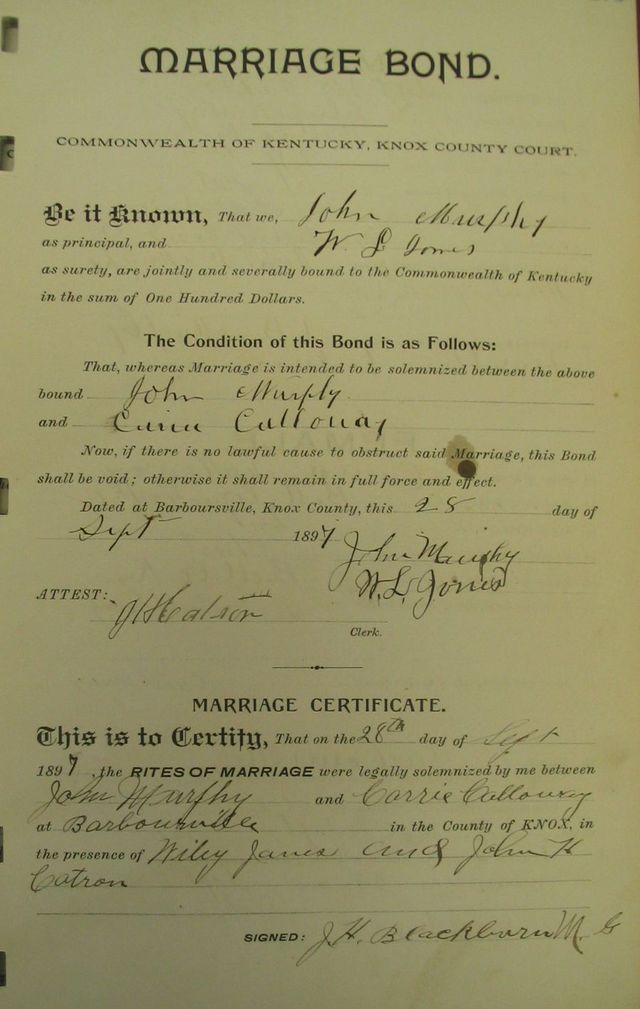 MARRIAGE BOND.
COMMONWEALTH OF KENTUCKY, KNOX COUNTY COURT.
Be it Known, That we, John Murphy
as principal, and W L Jones
as surety, are jointly and severally bound to the Commonwealth of Kentucky
in the sum of One Hundred Dollars.
The Condition of this Bond is as Follows:
That, whereas Marriage is intended to be solemnized between the above
bound John Murphy
and Calloway
Now, if there is no lawful cause to obstruct said Marriage, this Bond
shall be void; otherwise it shall remain in full force and effect.
Dated at Barboursville, Knox County, this 28 day of
Sept 1897
John Murphy
W. L. Jones
ATTEST:
Clerk.
MARRIAGE CERTIFICATE.
This is to Certify, That on the 28th day of Sept
1897, the RITES OF MARRIAGE were legally solemnized by me between
John Murphy and Carrie Calloway
at Barbourville in the County of KNOX, in
the presence of Wiley Jones and John H
Catron
SIGNED: J. H. Blackburn M. G